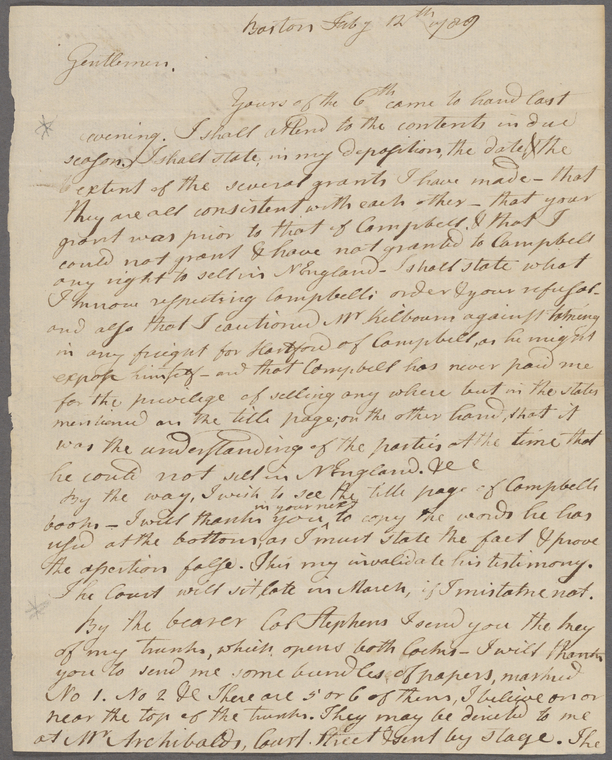 Boston Feby 12th 1789
Gentlemen.
Yours of the 6th came to hand last
evening. I shall attend to the contents in due
season. I shall state, in my deposition, the dates & the
extent of the several grants I have made - that
they are all consistent with each other - that your
grant was prior to that of Campbell, & that I
could not grant & have not granted to Campbell
any right to sell in N England - I shall state what
I know respecting Campbells order & your refusal -
and also that I cautioned Mr Kilbourn against taking
in any freight for Hartford of Campbell, as he might
expose himself - and that Campbell has never paid me
for the privilege of selling any where but in the states
mentioned on the title page; on the other hand, that it
was the understanding of the parties at the time that
he could not sell in N England. &c
By the way, I wish to see the title page of Campbells
books - I will thank you, in your next, to copy the words he has
us'd at the bottom, as I must state the fact & prove
the assertion false. This may invalidate his testimony.
The Court will sit late in March, if I mistake not.
By the bearer Col Stephens I send you the key
of my trunk, which opens both locks - I will thank
you to send me some bundles of papers, marked
No 1. No 2 &c There are 5 or 6 of them, I believe on or
near the top of the trunk. They may be directed to me
at Mr Archibalds, Court Street & sent by stage. The